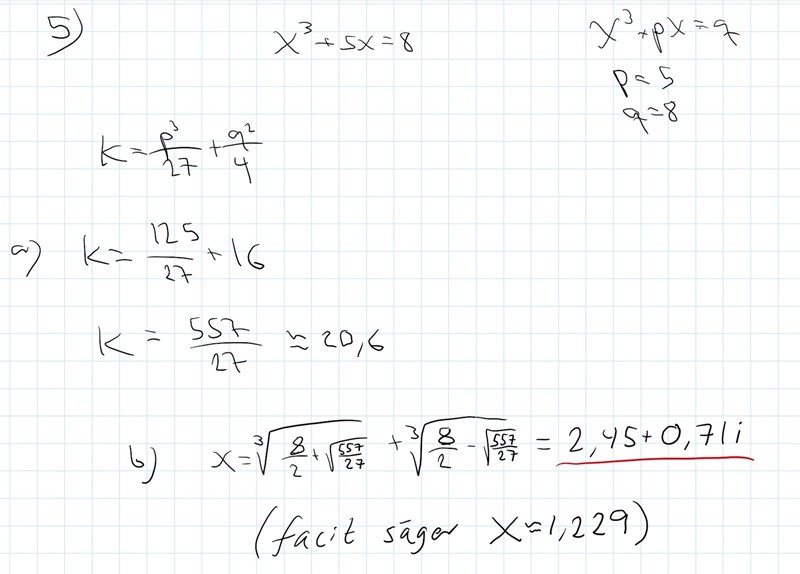 5) x³+5x=8 x³+px=q
p=5
q=8
K=p³/27+q²/4
a) K=125/27+16
K=557/27≈20,6
b) x=∛(8/2+√(557/27))+∛(8/2-√(557/27))=2,45+0,71i
(facit säger x≈1,229)